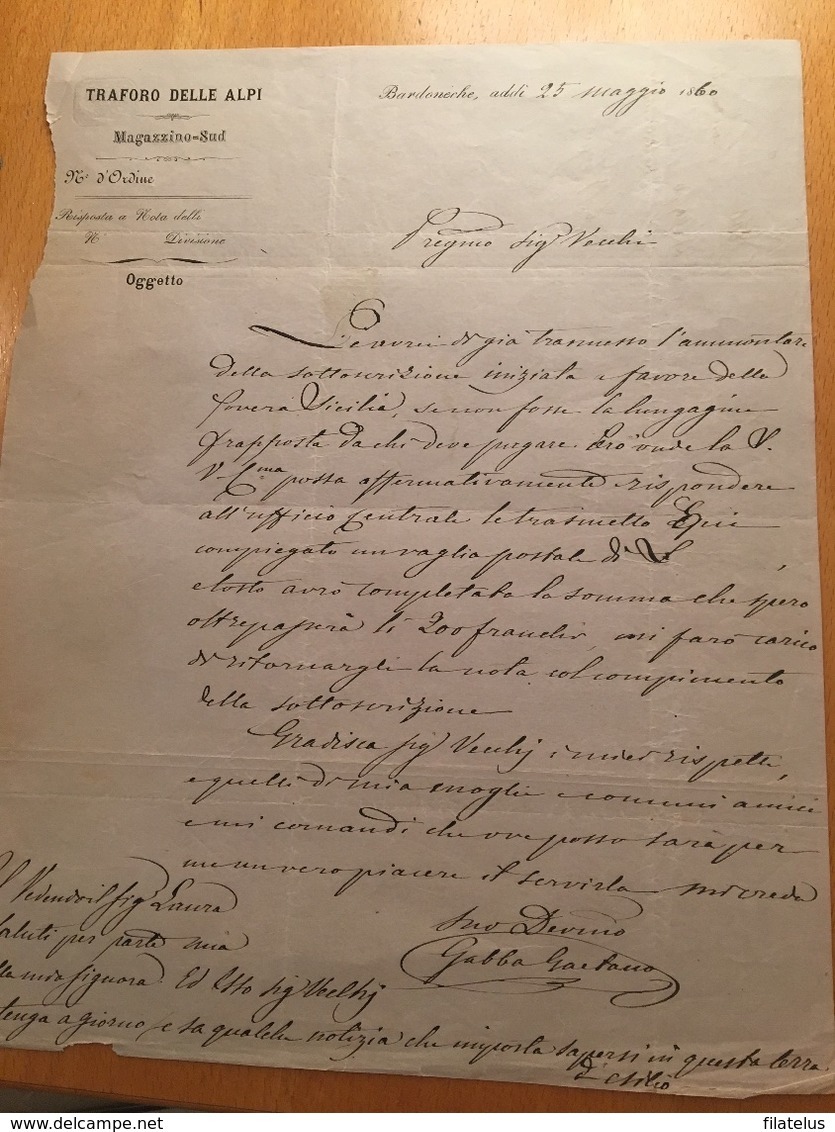 TRAFORO DELLE ALPI
Magazzino-Sud
N.º d'Ordine
Risposta a Nota delli
N.º Divisione
Oggetto
Bardoneche, addì 25 maggio 1860
Pregmo Sigr Vecchi
Le avrei di già trasmesso l'ammontare
della sottoscrizione iniziata a favore della
povera Sicilia, se non fosse la lungagine
frapposta da chi deve pagare. Però onde la S.
V. Cma possa affermativamente rispondere
all'ufficio Centrale le trasmetto qui
compiegato un vaglia postale di
e tosto avrò completata la somma che spero
oltrepasserà li 200 franchi, mi farò carico
di ritornargli la nota col compimento
della sottoscrizione
Gradisca Sigr Vecchj i miei rispetti,
e quelli di mia moglie e comuni amici
e mi comandi che ove posso sarà per
me un vero piacere il servirla mi creda
Suo Devmo
Gabba Gaetano
Vedendo il Sigr Laura
saluti per parte mia
della mia Signora. Ed Ella Sigr Vechj
tenga a giorno se sa qualche notizia che importa sapersi in questa terra
d'esilio
filatelus